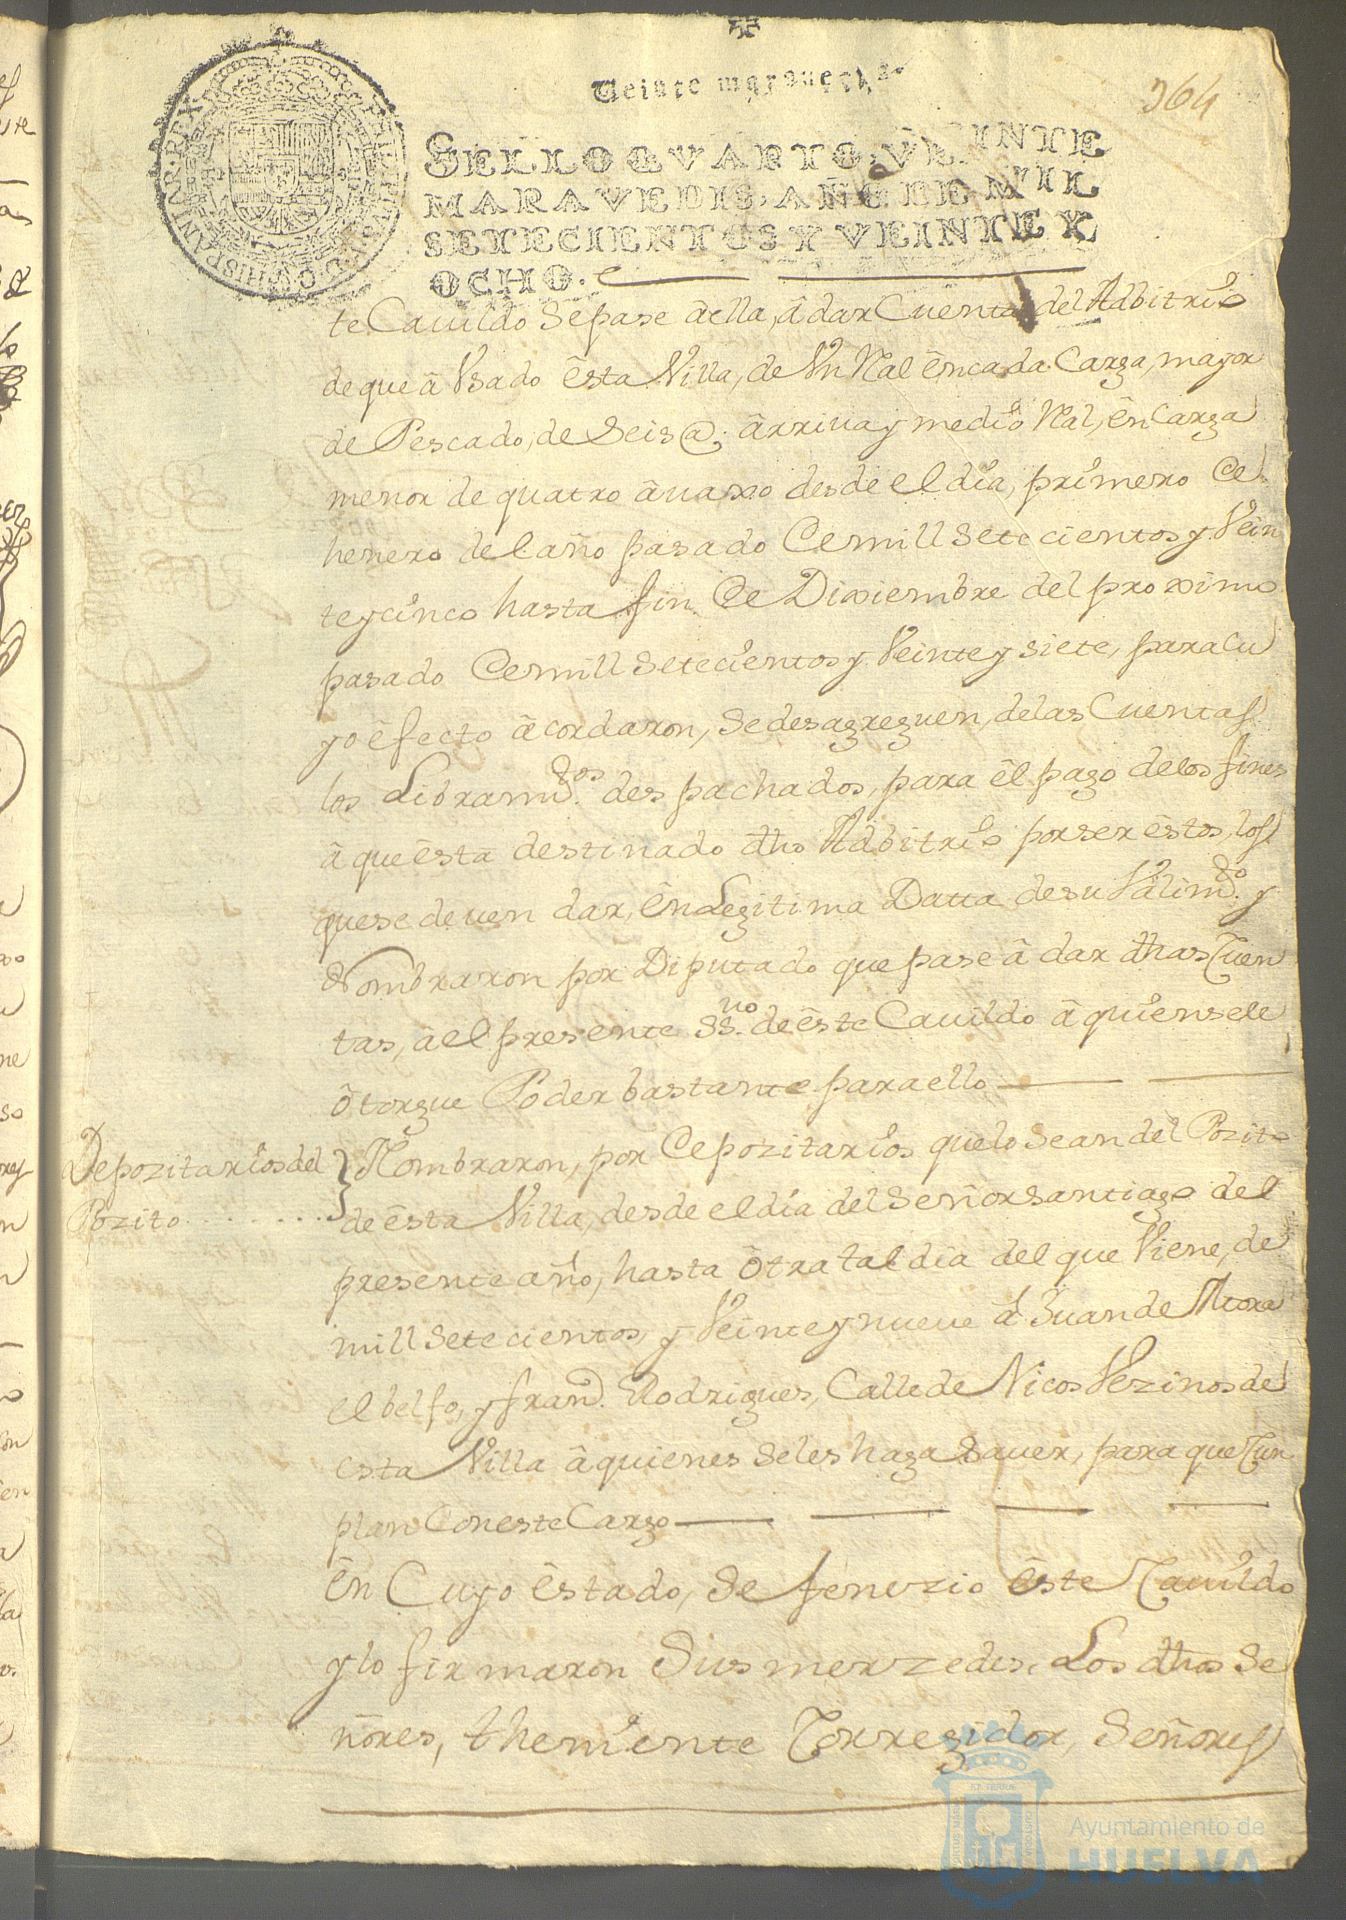 Veinte maravedis
364
SELLO QVARTO, VEINTE
MARAVEDIS, AÑO DE MIL
SETECIENTOS Y VEINTE Y
OCHO.
te Cauildo Sepase àella, â dar Cuenta del Adbitrio
de que â Vsado êsta Villa, de Vn Rˡal êncada Carga, mayor
de Pescado, de Seis @. ârriua y medio Rˡal, ên Carga
menor de quatro âuaxo desde el dia, primero De
henero del año pasado Demill Setecientos y Vein
te y cinco hasta fin De Diziembre del proximo
pasado Demill Setecientos y Veinte y siete, para Cu
yo êfecto âcordaron, Se desagreguen, delas Cuentas
los Libramᵗᵒˢ. des pachados, para êl pago delos fines
â que êsta destinado dho Adbitrio por ser êstos, los
que se deuen dar, ên Legitima Datta de su Valimᵗᵒ. y
Nombraron por Diputado que pase â dar dhas Cuen
tas, âel presente SSⁿᵒ. de êste Cauildo â quien sele
ôtorgue Poder bastante para ello
Depozitarios del
Pozito
Nombraron, por Depozitarios que lo Sean del Pozito
de êsta Villa, desde el dia del Señor Santiago del
presente año, hasta ôtra tal dia del que Viene, de
mill Setecientos, y Veinte y nueue â Juan de Mora
el belfo, y franᶜᵒ. Rodrigues, Calle de Ricos Vezinos de
esta Villa â quienes Seles haga Sauer, para que Cun
plan Con este Cargo
ên Cuyo êstado, Se fenezio êste Cauildo
y lo firmaron Sus merzedes, Los dhos Se
ñores, theniente Corregidor, Señores
Ayuntamiento de
HUELVA